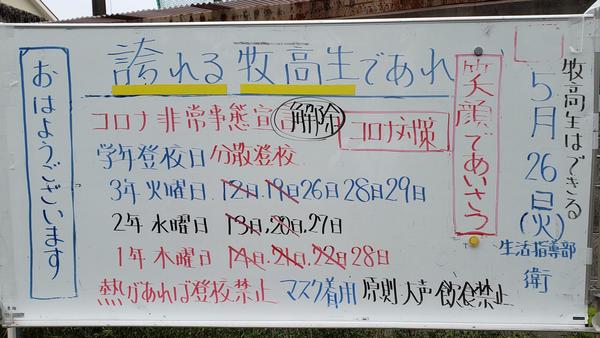 牧高生はできる
5月26日(火)
生活指導部
衛
笑顔であいさつ
誇れる牧高生であれ
コロナ非常事態宣 解除 コロナ対策
学年登校日 分散登校
3年火曜日 12日.19日26日28日29日
2年水曜日 13日.20日.27日
1年木曜日 14日.21日.22日28日
熱があれば登校禁止 マスク着用 原則大声飲食禁止
おはようございます